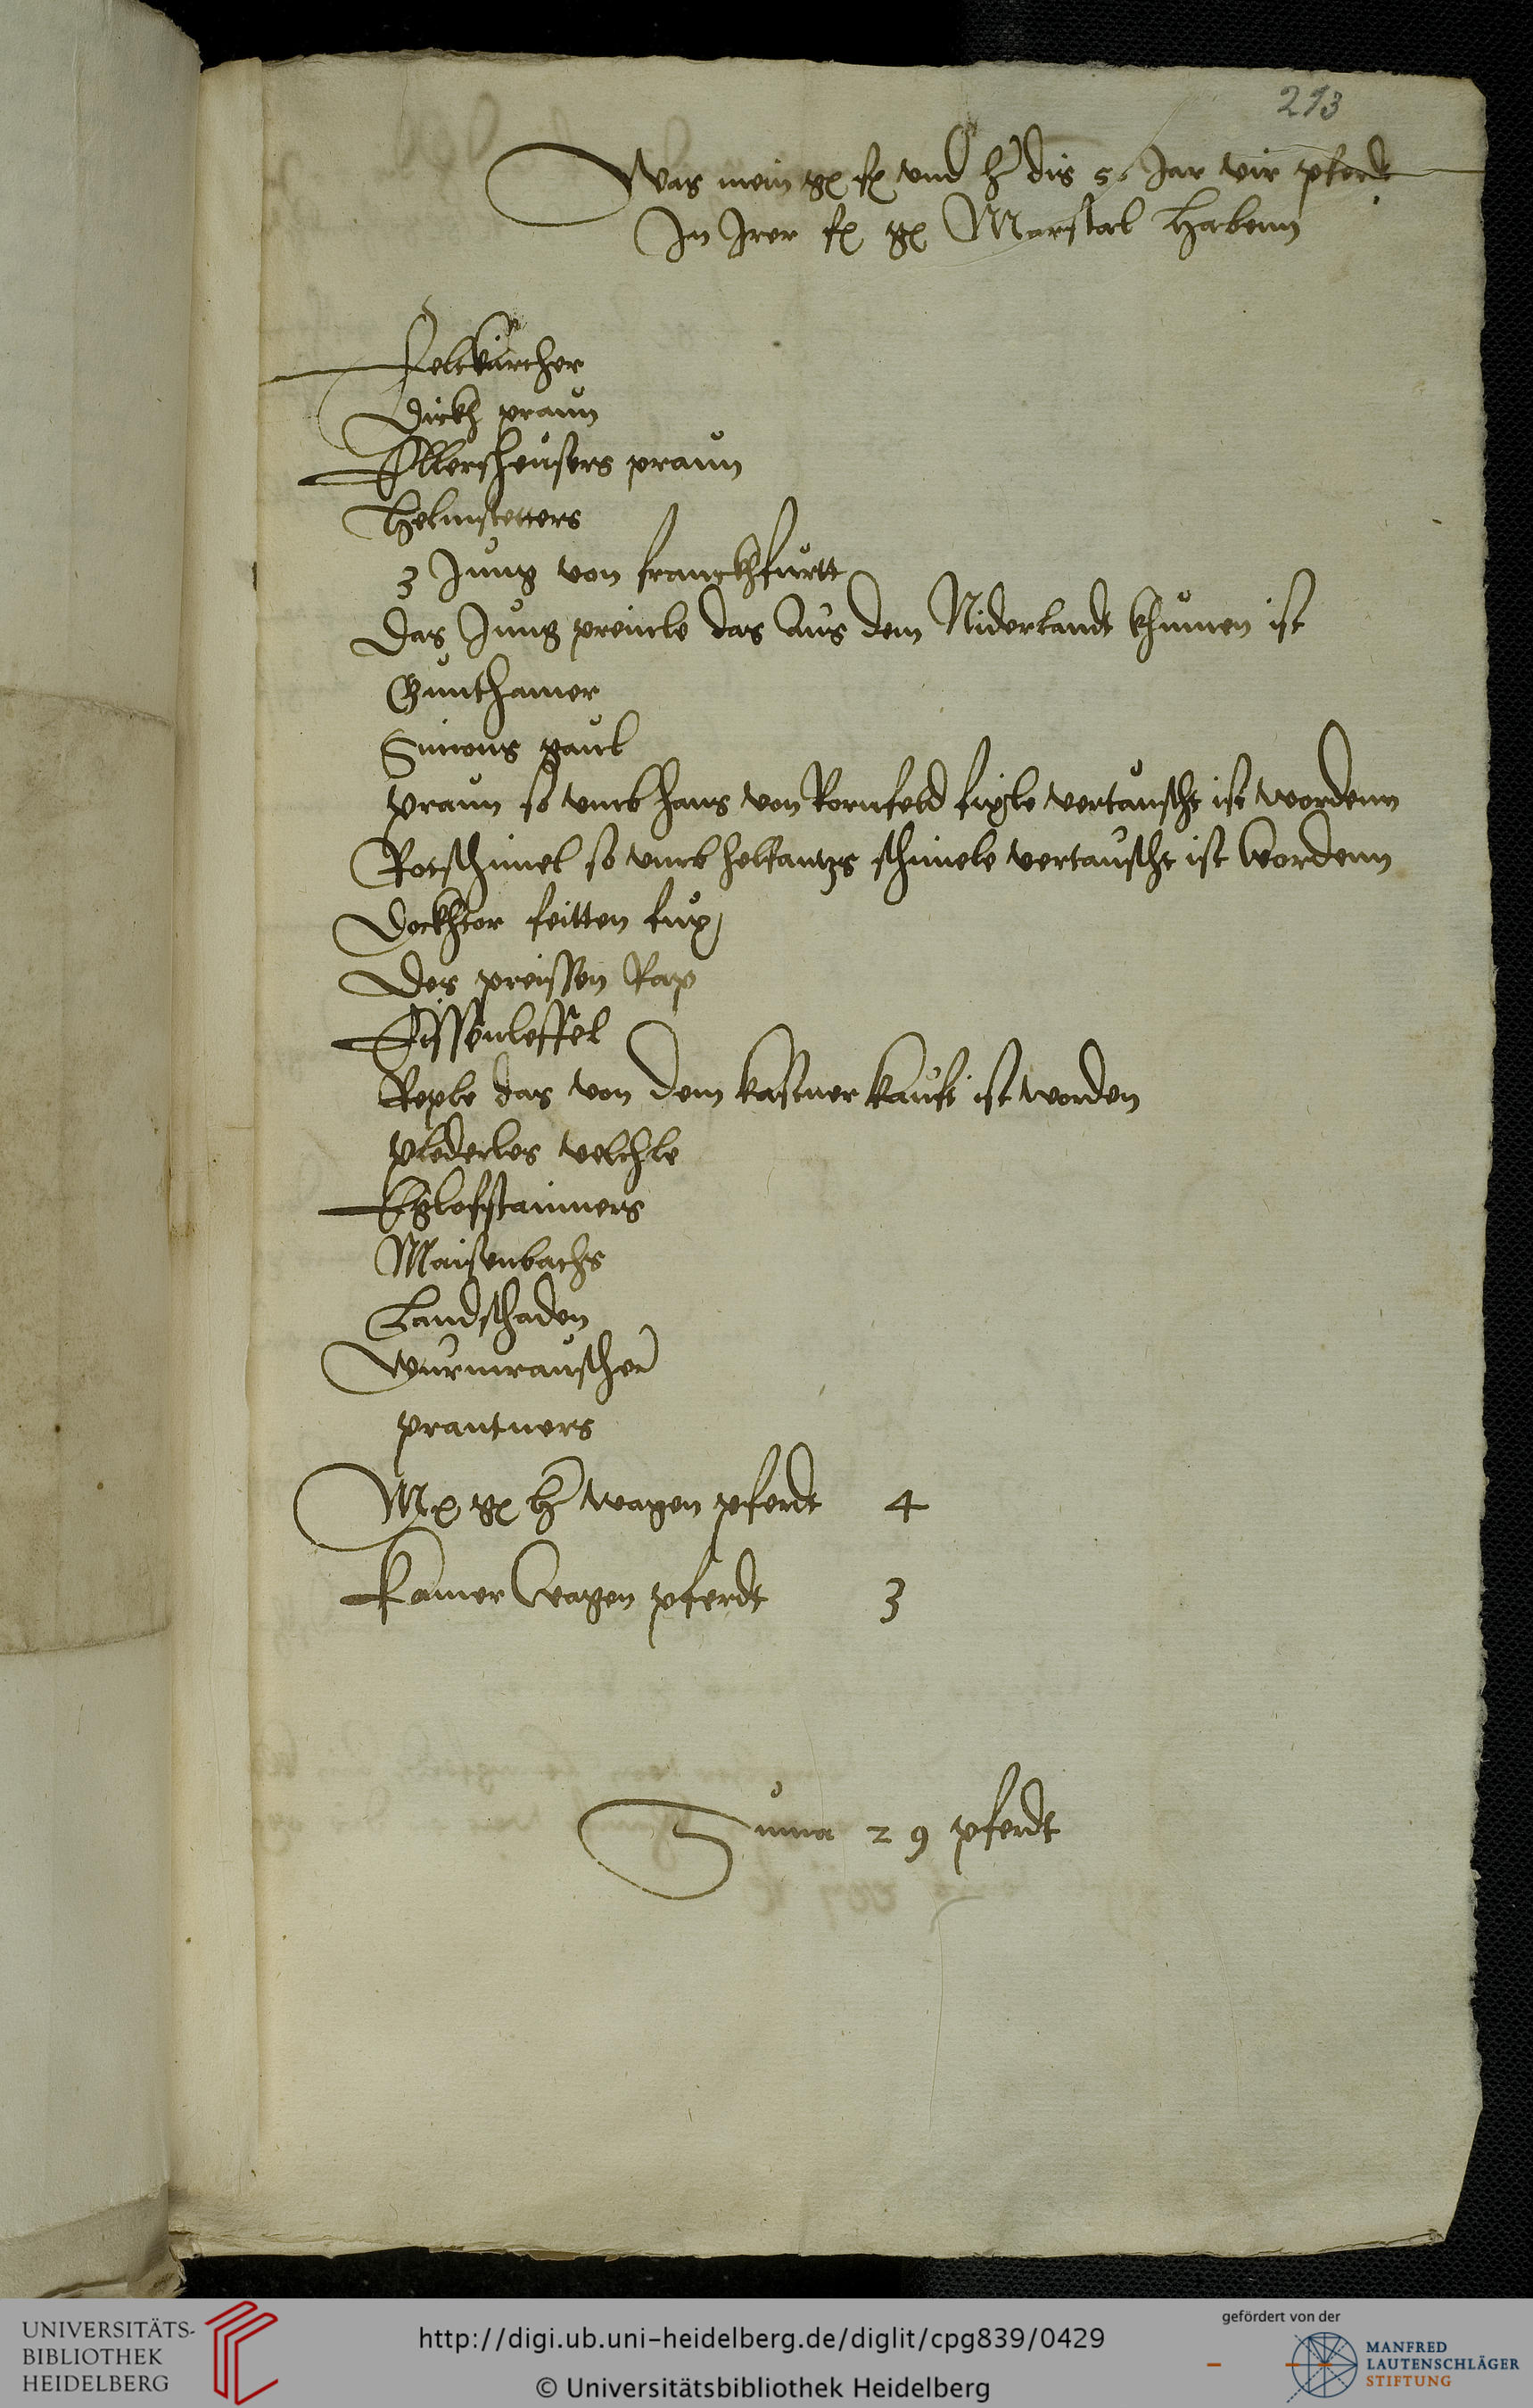 213
Was mein gx fx vnd h dis 56 Jar vir pferdt
In Irer fx gx Marstal habenn
Feltkürcher
Dirckh praun
Ellersheusers praun
Helmstetters
3 Jung von franckhfurtt
Das Jung preinle das aus dem Niderlandt khumen ist
Gunthamer
Simons gaul
praun so vmb hans von Kornfeld fixle vertauscht ist wordenn
Rotschimel so vmb helfantzs schimele vertauscht ist wordenn
Dockhtor feitten fux
Des preissen Rap
Eissenleffel
Reple das von dem kastner kauft ist worden
plederles velchle
Eglofstainners
Maisenbachs
Landschaden
Wurmrauscher
prantners
Mx gx h wagen pferdt 4
Kamer wagen pferdt 3
Suma 29 pferdt
UNIVERSITÄTS-
BIBLIOTHEK
HEIDELBERG
http://digi.ub.uni-heidelberg.de/diglit/cpg839/0429
© Universitätsbibliothek Heidelberg
gefördert von der
MANFRED
LAUTENSCHLÄGER
STIFTUNG